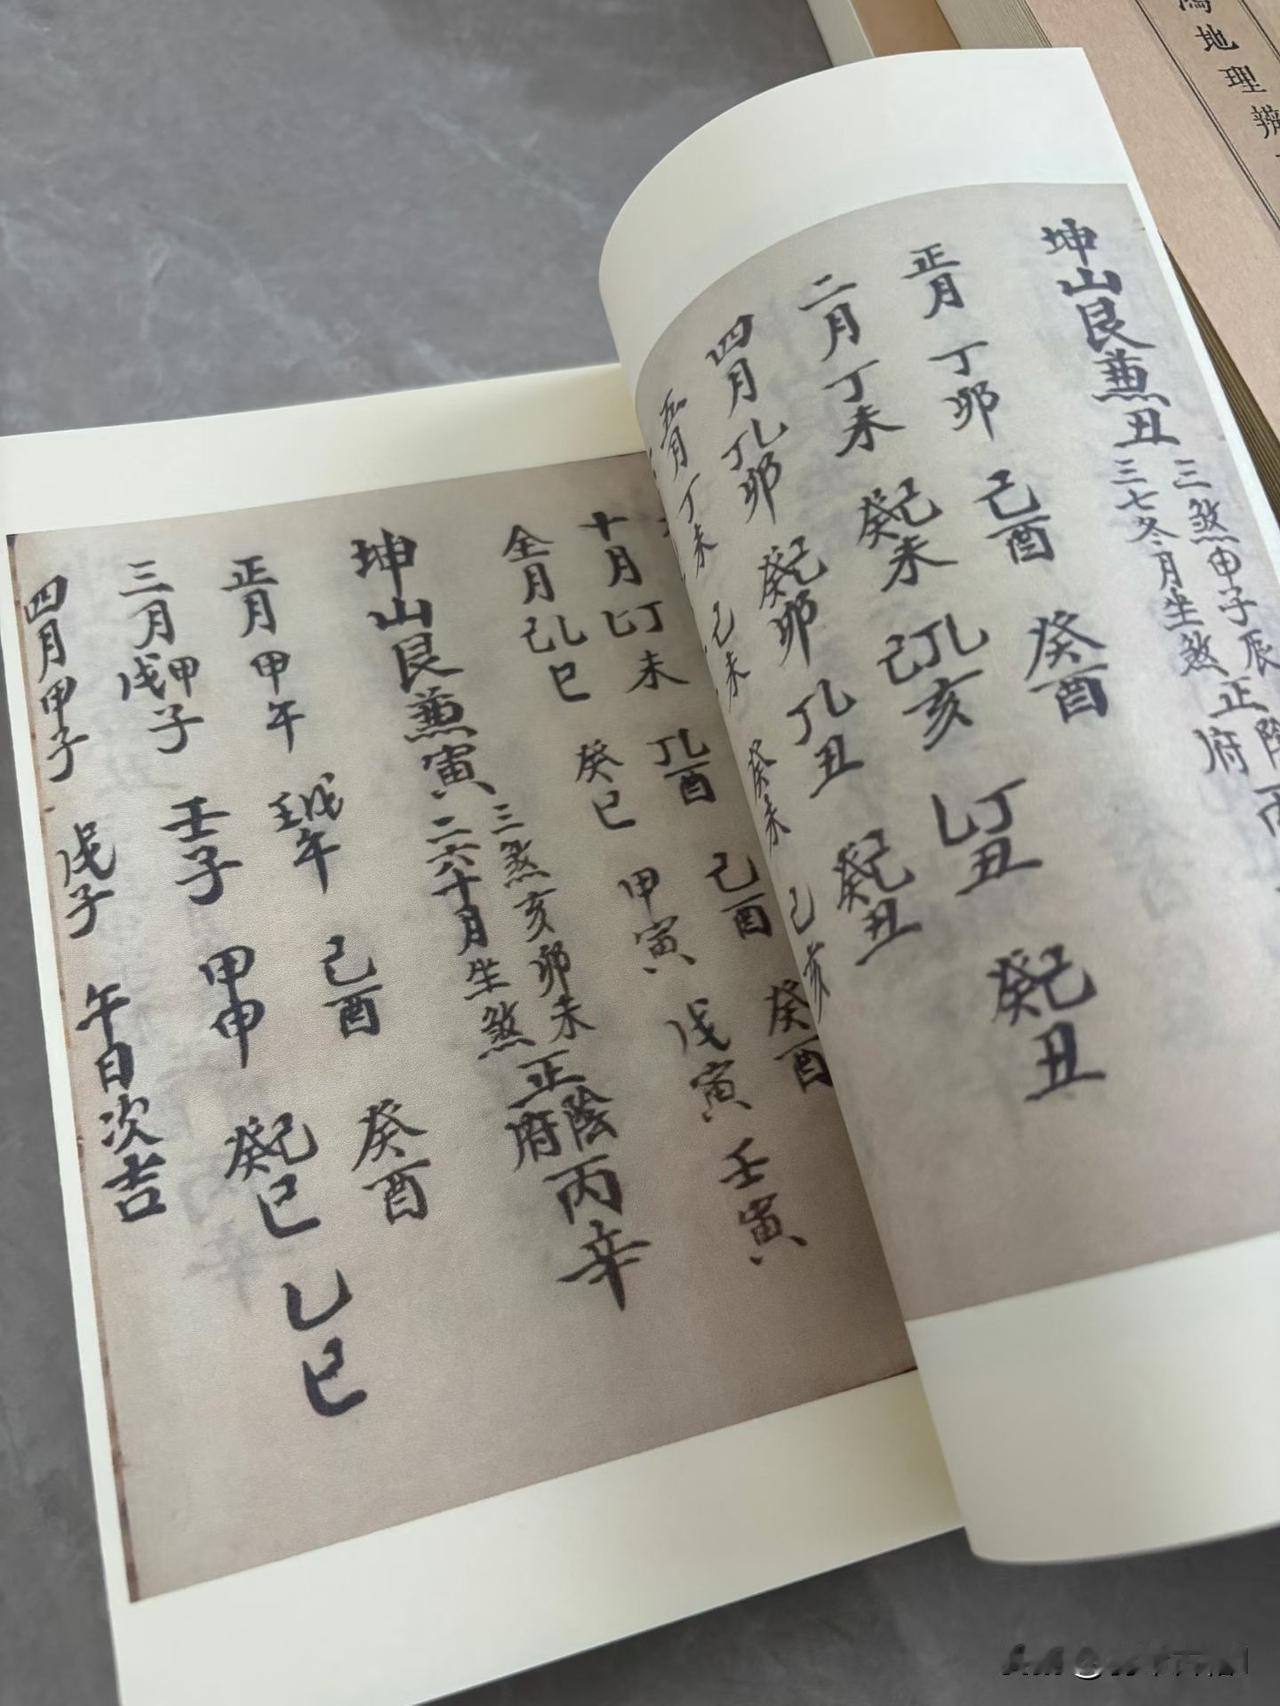 坤山艮兼丑
三煞申子辰
三七冬月坐煞
正
府
陰
丙
正月 丁卯 己酉 癸酉 丁乙丑 己癸丑
二月 丁未 己癸未 乙丁己亥
四月 乙丁卯 己癸卯 乙丁丑 己癸丑
五月 丁未 己未 癸未 己亥
十月 丁乙未 乙丁酉 己酉 癸酉
全月 乙己巳 癸巳 甲寅 戊寅 壬寅
坤山艮兼寅
三煞亥卯未
二六十月坐煞
正陰府丙辛
正月 甲午 戊壬午 己酉 癸酉
三月 甲戊子 壬子 甲申 己癸巳 乙巳
四月 甲子 戊子 午日次吉
地理辨